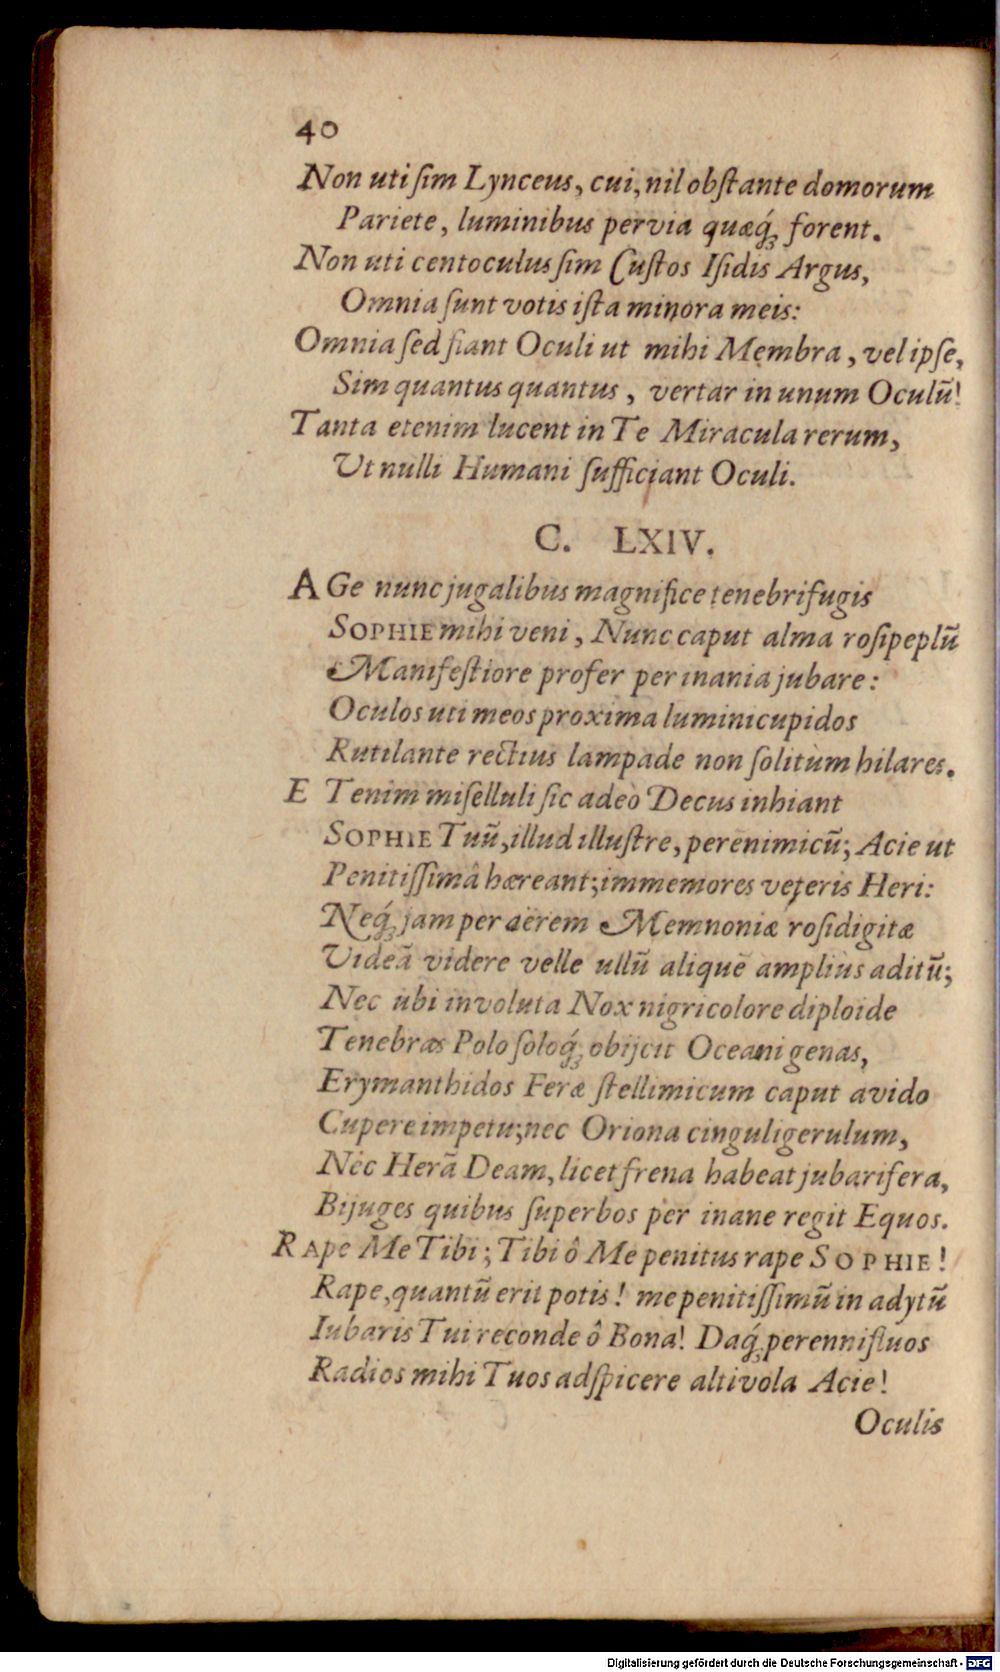 40
Non uti ſim Lynceus, cui, nil obſtante domorum
Pariete, luminibus pervia quæq́ꝫ forent.
Non uti centoculus ſim Cuſtos Iſidis Argus,
Omnia ſunt votis iſta minora meis:
Omnia ſed fiant Oculi ut mihi Membra, vel ipſe,
Sim quantus quantus, vertar in unum Oculũ!
Tanta etenim lucent in Te Miracula rerum,
Ut nulli Humani ſufficiant Oculi.
C. LXIV.
AGe nunc jugalibus magnifice tenebrifugis
SOPHIE mihi veni, Nunc caput alma roſipeplũ
Manifeſtiore profer per inania jubare:
Oculos uti meos proxima luminicupidos
Rutilante rectius lampade non ſolitùm hilares.
ETenim miſelluli ſic adeò Decus inhiant
SOPHIE Tuũ, illud illuſtre, perenimicũ; Acie ut
Penitiſſimâ hæreant; immemores veteris Heri:
Neq́ꝫ jam per aërem Memnoniæ roſidigitæ
Videã videre velle ullũ aliquẽ ampliùs aditũ;
Nec ubi involuta Nox nigricolore diploide
Tenebras Polo ſoloq́ꝫ obijcit Oceanigenas,
Erymanthidos Feræ ſtellimicum caput avido
Cupere impetu; nec Oriona cinguligerulum,
Nec Herã Deam, licet frena habeat jubarifera,
Bijuges quibus ſuperbos per inane regit Equos.
RApe Me Tibi; Tibi ô Me penitus rape SOPHIE!
Rape, quantũ erit potis! me penitiſſimũ in adytũ
Iubaris Tui reconde ô Bona! Daq́ꝫ perennifluos
Radios mihi Tuos adſpicere altivola Acie!
Oculis
Digitalisierung gefördert durch die Deutsche Forschungsgemeinschaft - DFG